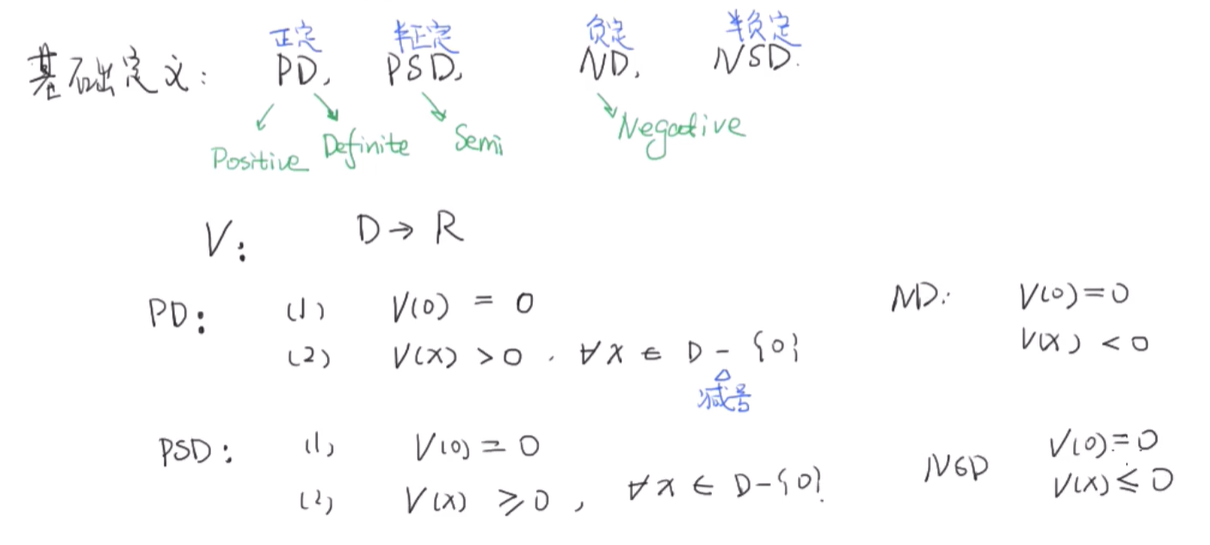 正定 半正定 负定 半负定
基础定义: PD, PSD, ND, NSD.
Positive Definite Semi Negative
V: D → R
PD: (1) V(0) = 0 ND: V(0)=0
(2) V(x) > 0 . ∀ x ∈ D - {0} V(x) < 0
减号
PSD: (1) V(0) = 0 NSD V(0)=0
(2) V(x) ⩾ 0 , ∀ x ∈ D-{0} V(x) ⩽ 0